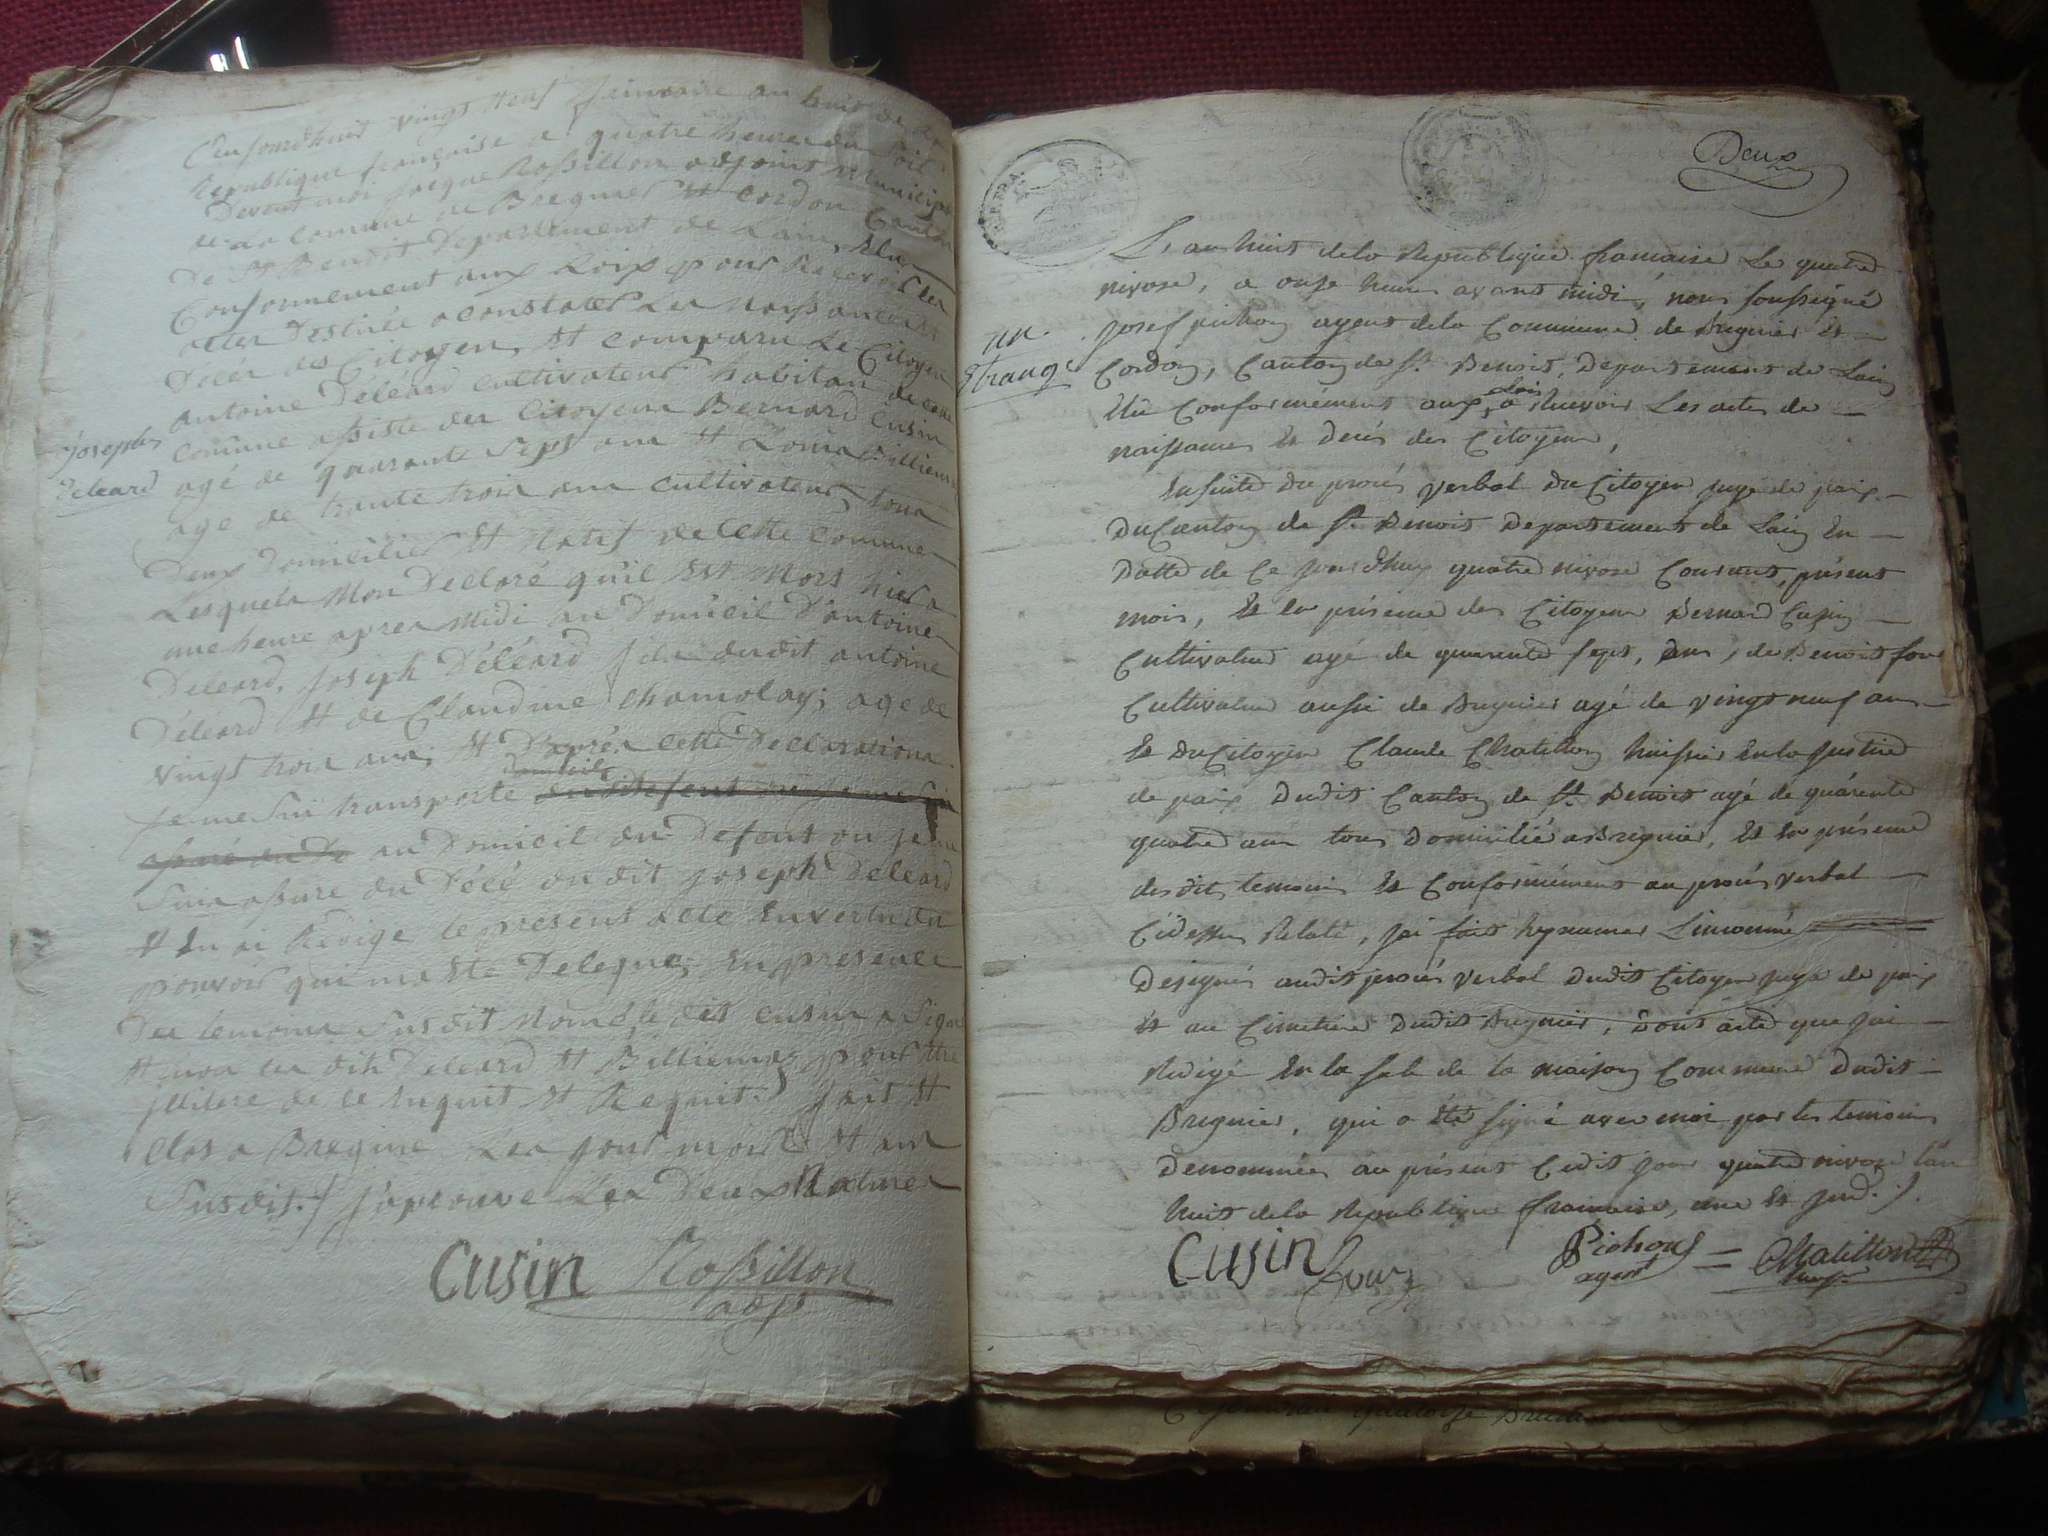 Ceujourdhuit vingt Neuf frimeaire an huit de la
Republique française a quatre heures du soit
Devent moi Jacque Rossillon adjoint municipal
de la Comune de Bregnier et Cordon Canton
De St Benoit Departement de Lain, Elu
Conformement aux Loix pour Recevoir les
actes Destinée a constater Les Naissances et
Décés des Citoyen, et comparu Le Citoyen
Antoine Déléard cultivateur habitan de cette
comune assiste des Citoyens Bernard Cusin
Joseph
Deleard
agé de quarante sept ans et Louis Billiemaz
age de trante trois ans cultivateurs tous
Deux Domicilier et Natif de Cette Comune
Lesquels Mon Declaré qu'il Est Mort hier a
une heure apres Midi au Domicil D'antoine
Deleard, Joseph Déléard fils dudit antoine
Déléard et de Claudine Chamolay; age de
vingt trois ans; et D'aprés cette Declarations
Domicile
Je me suit transporte
au Domicil du Defunt ou je me
suis assure du Décé dudit Joseph Deleard
et en ai Redige le present acte En vertu du
pouvoir qui ma Ete Delegué; En presence
Des temoins Susdit Nomé, le dit cusin a Signé
et non les dits Deleard et Billiemaz pour être
illitere de ce Enquit et Requit./ fait et
Clos a Bregnie Les jour mois et ans
Susdit./ J'aprouve Les Deux Ratures
Cusin Rossillon
adjt
Deux
L'an huit de la Republique francaise Le quatre
nivose, a onze heures avant midi, nous soussigné
un
Etrangé
Josef pichon agent dela Commune de Bregnier et
Cordon, Canton de St Benoit, Departement de Lain
Elû Conformément aux Lois a Recevoir Les actes de
naissances et decés des Citoyens,
Ensuite du procés verbal du Citoyen juge de paix
Du Canton de St Benoit Departement de Lain En
Datte de Ce jourdhuy quatre nivose Courant, présent
mois, Et la présence des Citoyens Bernard Cusin
Cultivateur agé de quarente sept, ans, de Benoit four
Cultivateur aussi de Bregnier agé de vingt neuf ans
Et du Citoyen Claude Chatillon huissier En la Justice
de paix Dudit Canton de St Benoit agé de quarente
quatre ans tous Domicilié a Bregnier, Et En présence
desdit temoins Et Conformément au procés verbal
Cidessus Relaté, jai fait hynumer Linconnu
Désignés audit procés verbal Dudit Citoyen juge de paix
Et au Cimetiere Dudit Bregnier, Dont acte que jai
Redigé En la sale de la maison Commune Dudit
Bregnier, qui a été signé avec moi par les temoins
Denommées au présent Cedit jour quatre nivose l'an
huit de la Republique francaise, une et Ind./.
Cusin four Pichon
agent Chatillon
huissr